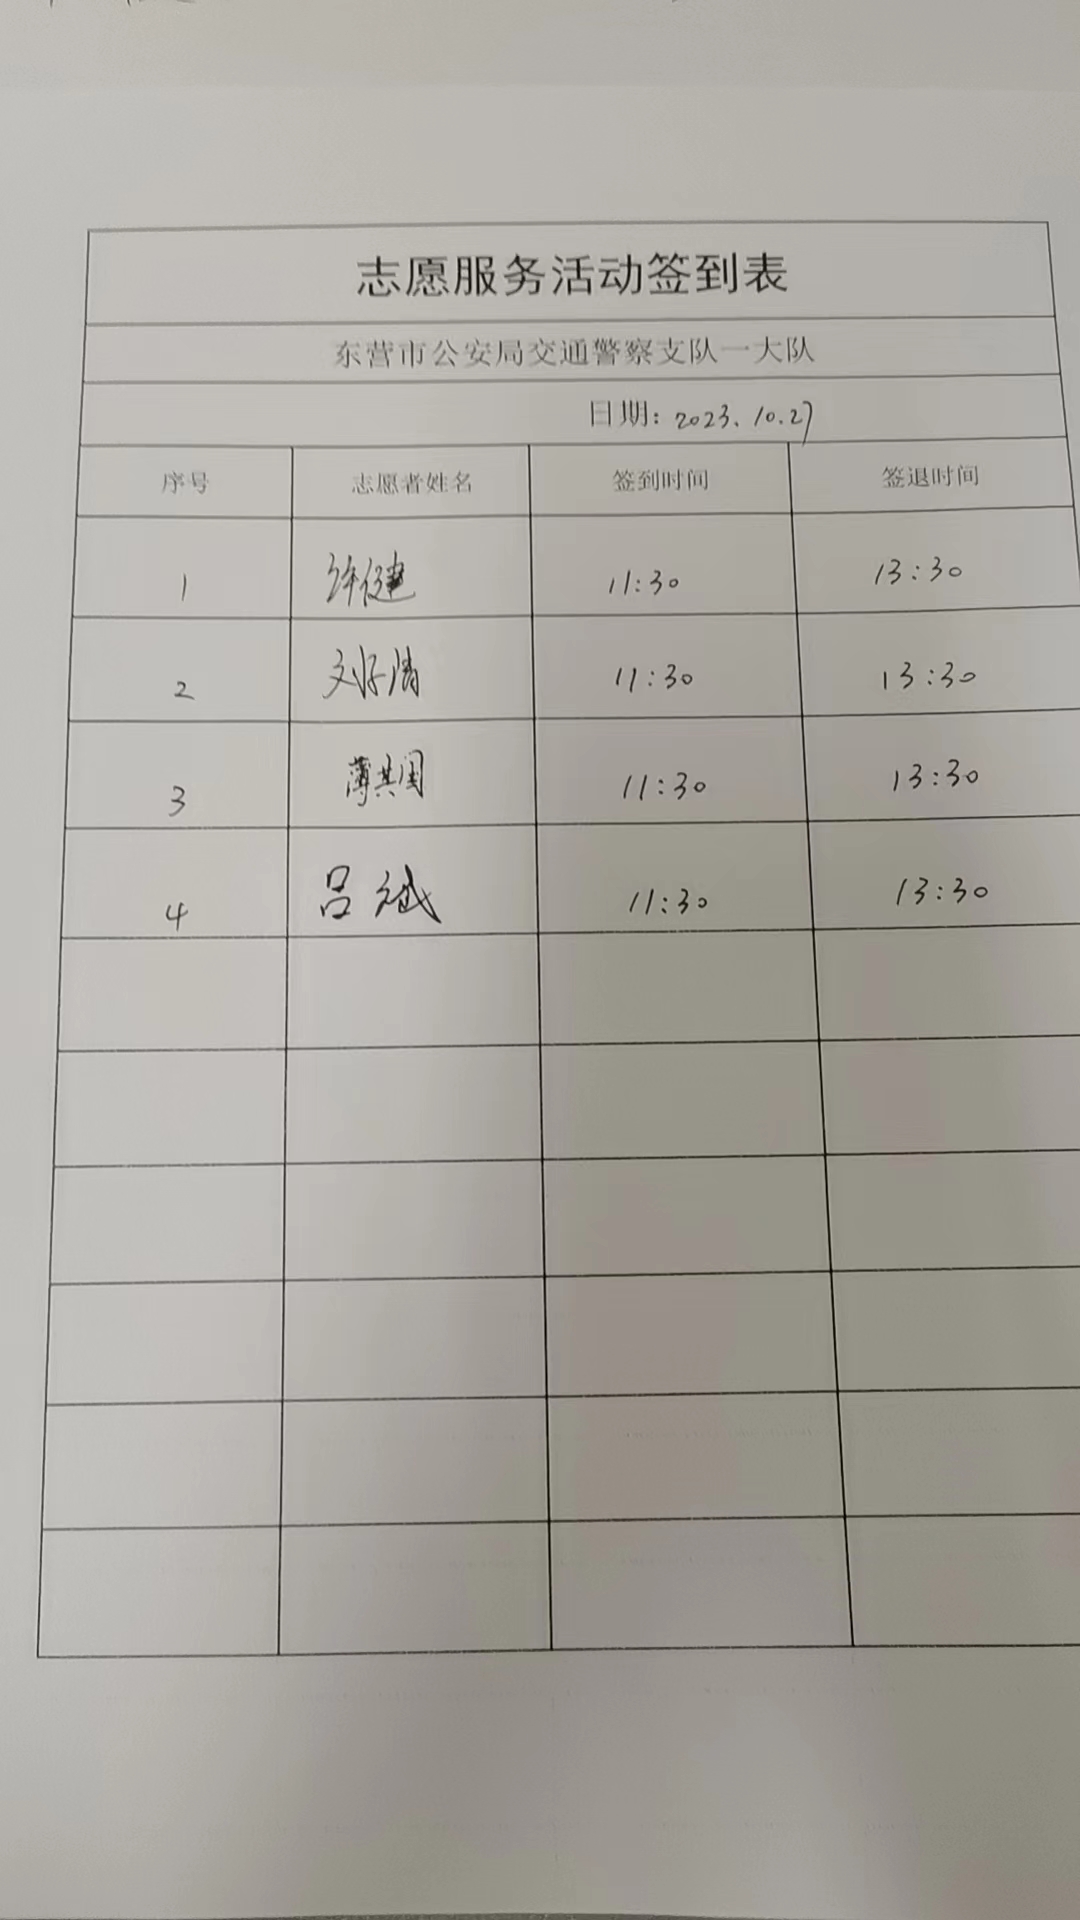 志愿服务活动签到表
东营市公安局交通警察支队一大队
日期: 2023.10.27
序号 志愿者姓名 签到时间 签退时间
1 许健 11:30 13:30
2 11:30 13:30
3 薄其国 11:30 13:30
4 吕斌 11:30 13:30